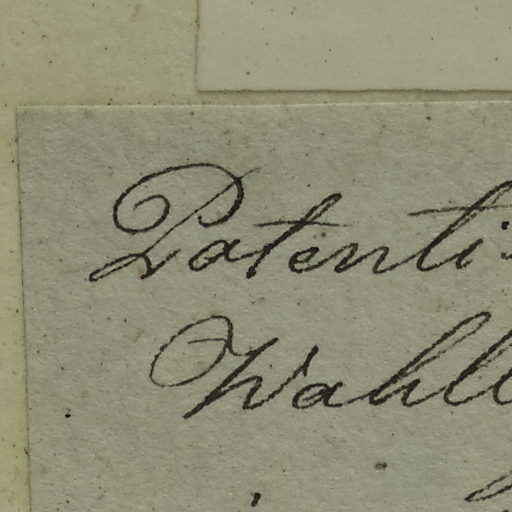 Potenti
Wahll